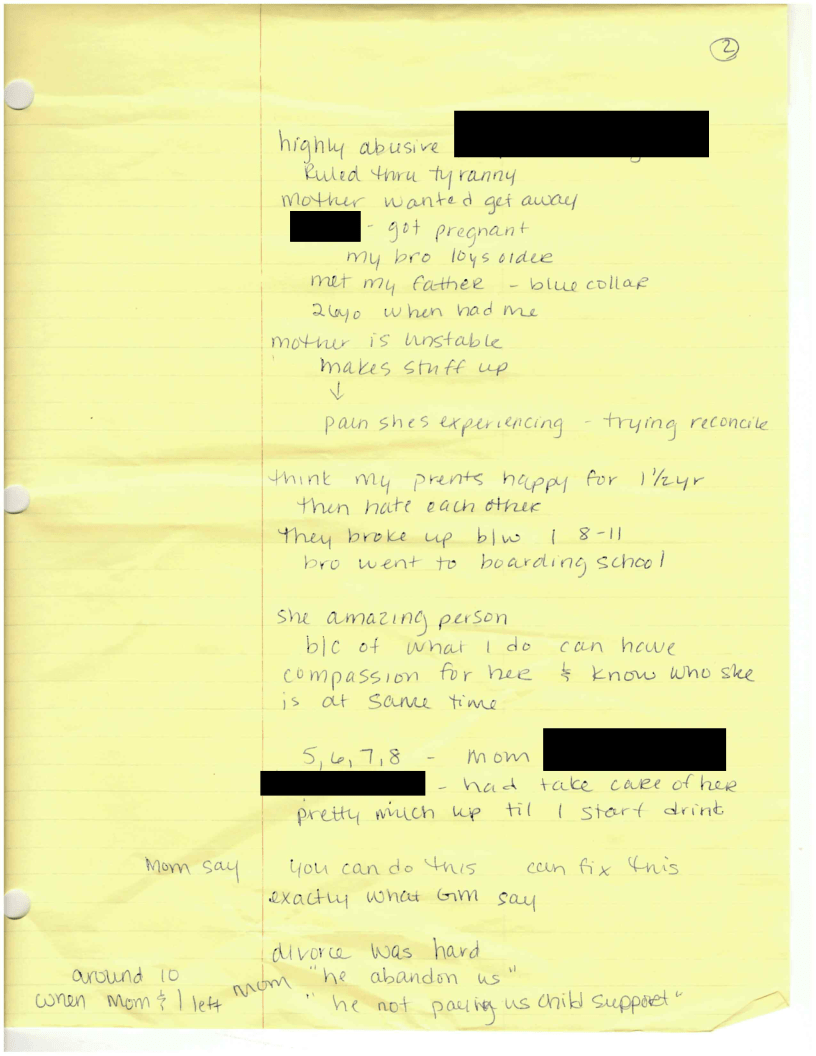 2
highly abusive
Ruled thru tyranny
mother wanted get away
- got pregnant
my bro 10ys older
met my father - blue collar
26yo when had me
mother is unstable
makes stuff up
↓
pain shes experiencing - trying reconcile
think my prents happy for 1 1/2 yr
then hate each other
they broke up b/w I 8-11
bro went to boarding school
she amazing person
b/c of what I do can have
compassion for her & know who she
is at same time
5,6,7,8 - mom
- had take care of her
pretty much up til I start drink
Mom say you can do this can fix this
exactly what GM say
divorce was hard
around 10 mom "he abandon us"
when mom & I left "he not paying us child support"